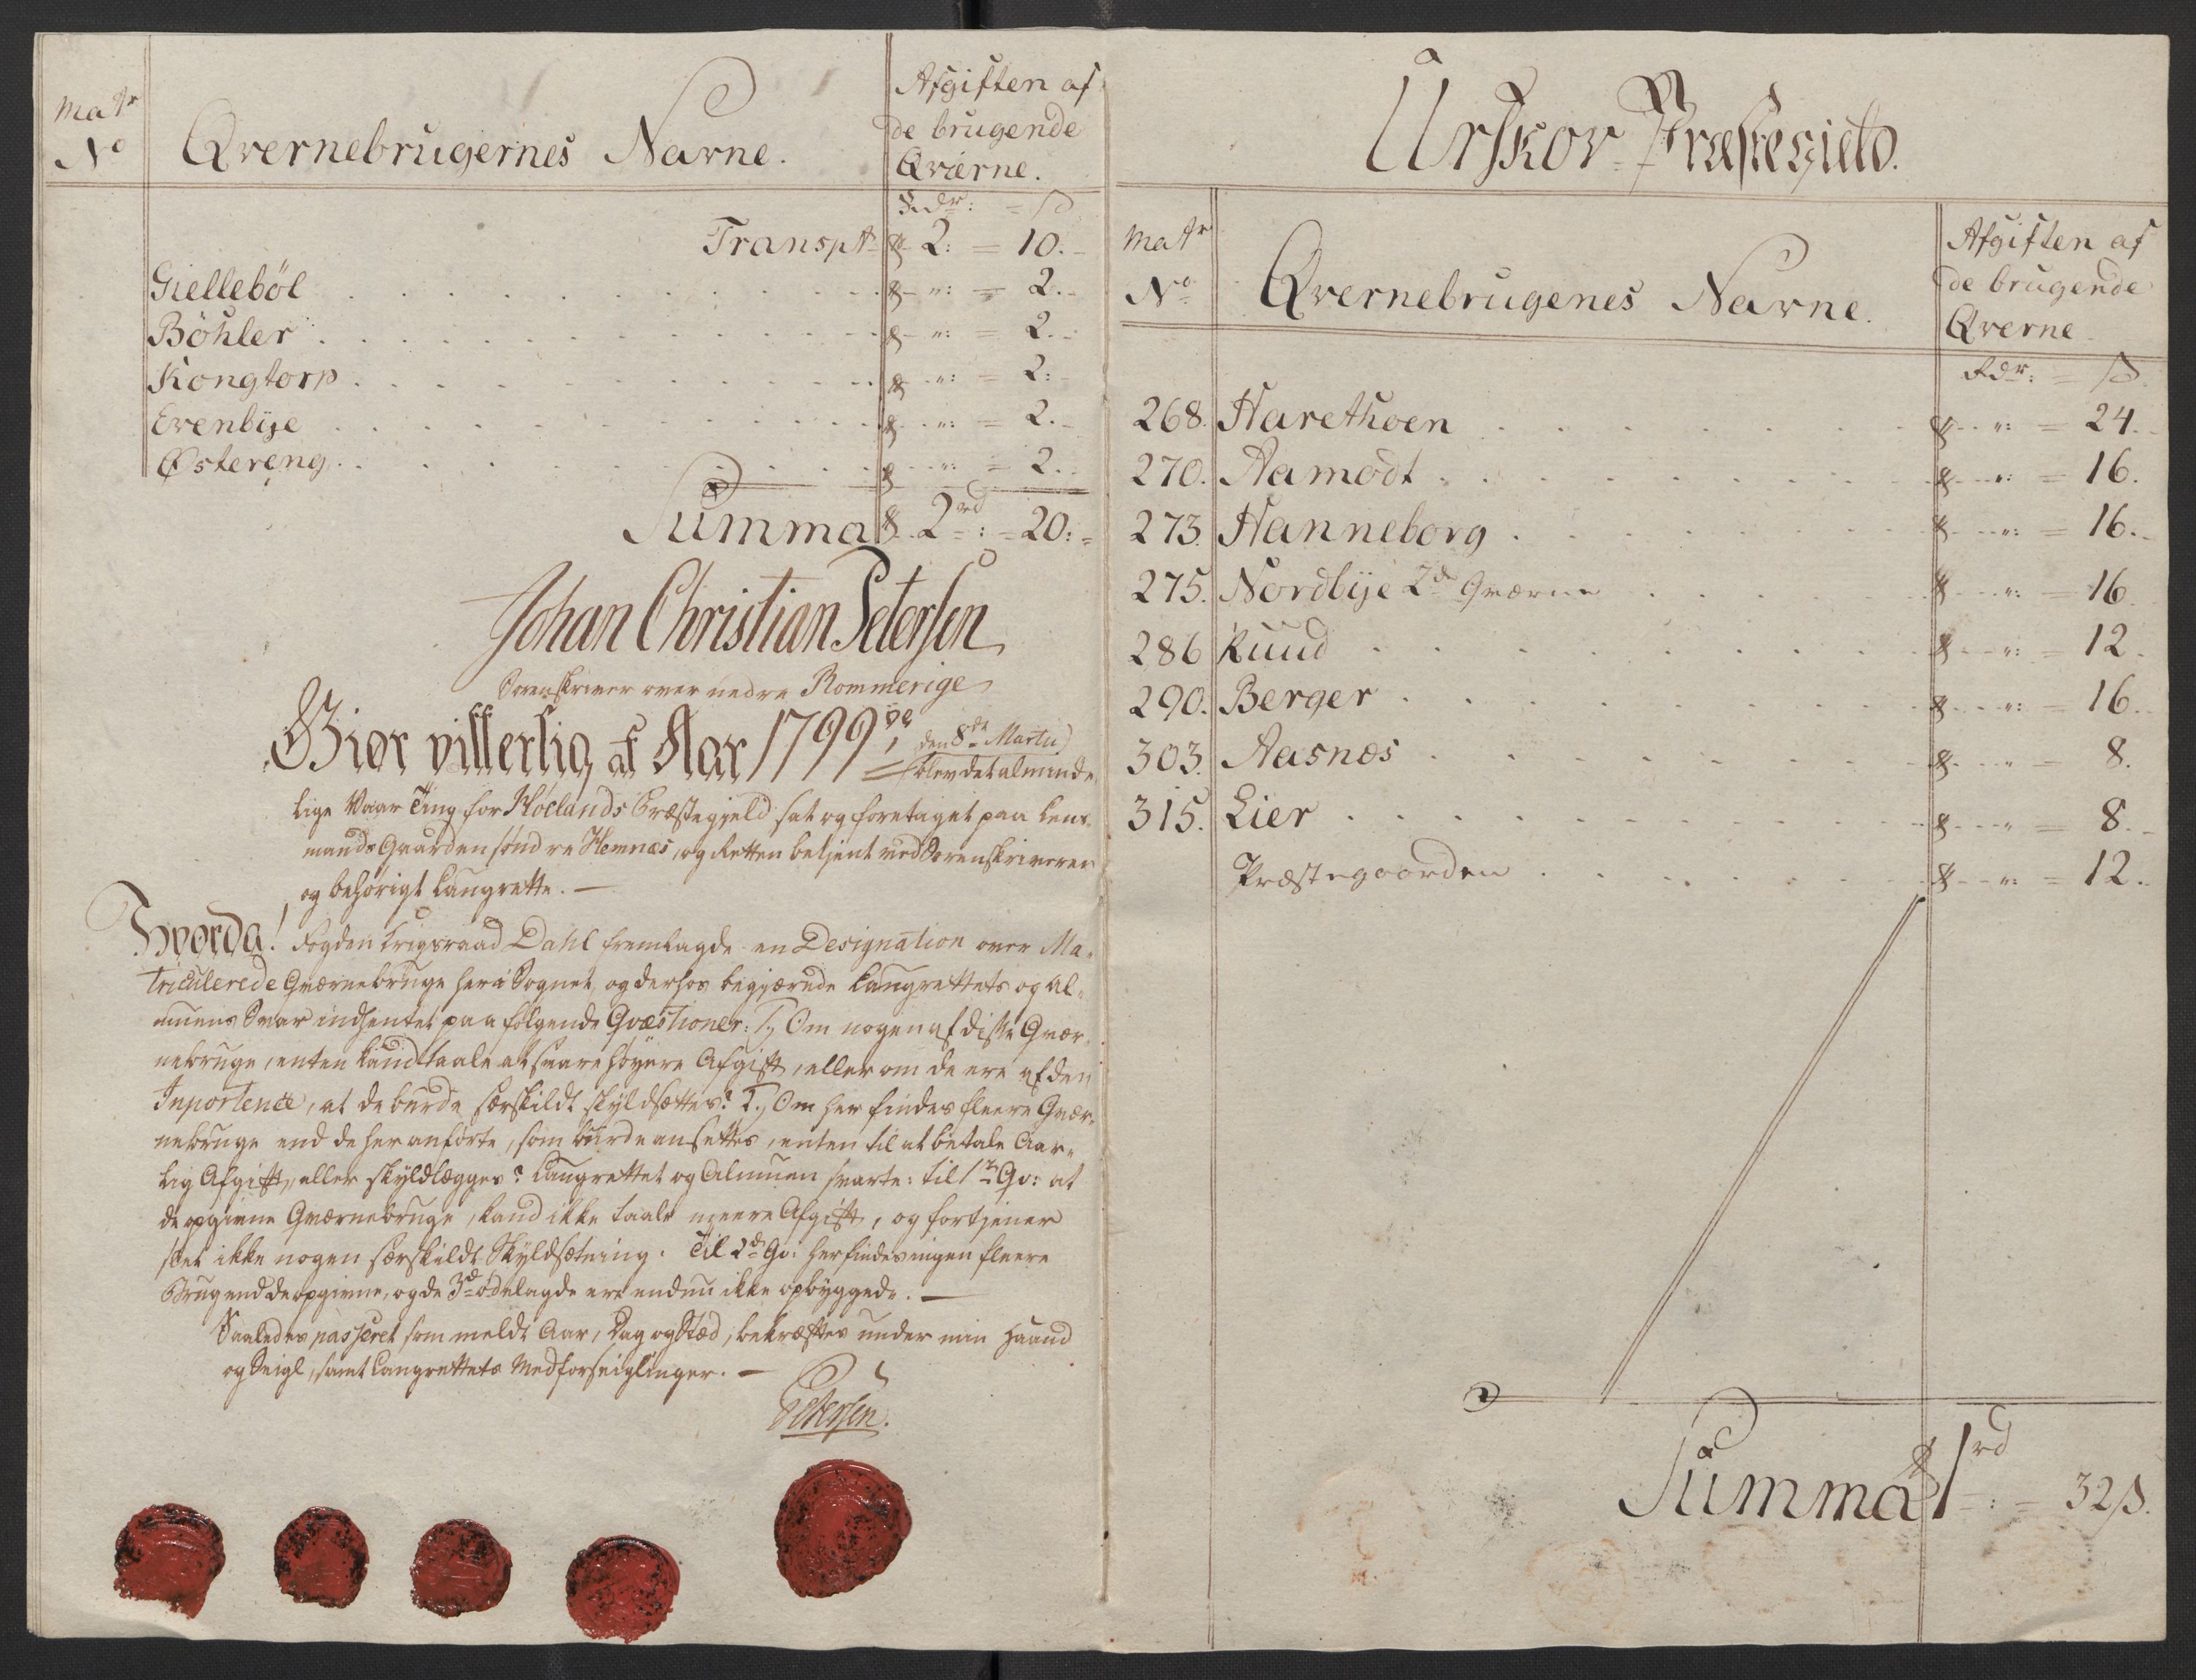 Matr
No
Qvernebrugernes Navne.
Afgiften af
de brugende
Qværne.
Rdr: = ß
Transpt 2: = 10.
Gielleböl . . . ": = 2.
Böhler . . . ": = 2.
Kongtorp . . . ": = 2:
Evenbÿe . . . ": = 2.
Østereng . . . ": = 2.
Summa 2rd: = 20:
Johan Christian Petersen
Sorenskriver over nedre Rommerige
Giör vitterlig at Aar 1799de, den 8de Martii
blev det alminde
lige Vaar Ting for Hölands Præstegjeld sat og foretaget paa Lens-
mands Gaarden söndre Hemnæs, og Retten betjent med Sorenskriveren
og behörigt Laugrette. —
Hvorda! Fogden Krigsraad Dahl fremlagde en Designation over Ma-
triculerede Qværnebruge her i Sognet, og derhos begjærede Laugrettets og Al-
muens Svar indhentet paa fölgende Qvæstioner: 1.) Om nogen af disse Qvær-
nebruge, enten kand taale at svare höyere Afgift, eller om de ere af den
Inportence, at de burde særskildt skÿldsættes? 2.) Om her findes fleere Qvær-
nebruge end de her anförte, som burde ansettes, enten til at betale Aar-
lig Afgift, eller skÿldlægges? Laugrettet og Almuen svarte: til 1te Qv: at
de opgivne Qværnebruge, kand ikke taale meere Afgift, og fortjener
slet ikke nogen særskildt Skÿldsætning. Til 2de Qv: her findes ingen fleere
Brug end de opgivne, og de 3de ödelagde ere endnu ikke opbyggede. —
Saaledes passeret som meldt Aar, Dag og Stæd, bekræftes under min Haand
og Seigl, samt Laugrettets Medforseiglinger. —
Petersen.
Urskov Præstegield.
Matr
No
Qvernebrugenes Navne.
Afgiften af
de brugende
Qverne
Rdr: = ß.
268. Harethoen . . . ": = 24.
270. Aamodt . . . ": = 16.
273. Hanneborg . . . ": = 16.
275. Nordbÿe 2de Qværne . . . ": = 16.
286 Ruud . . . ": = 12.
290. Berger . . . ": = 16.
303. Aasnæs . . . " = 8.
315. Lier . . . " = 8.
Præstegaarden . . . ": = 12.
Summa 1rd: = 32ß.